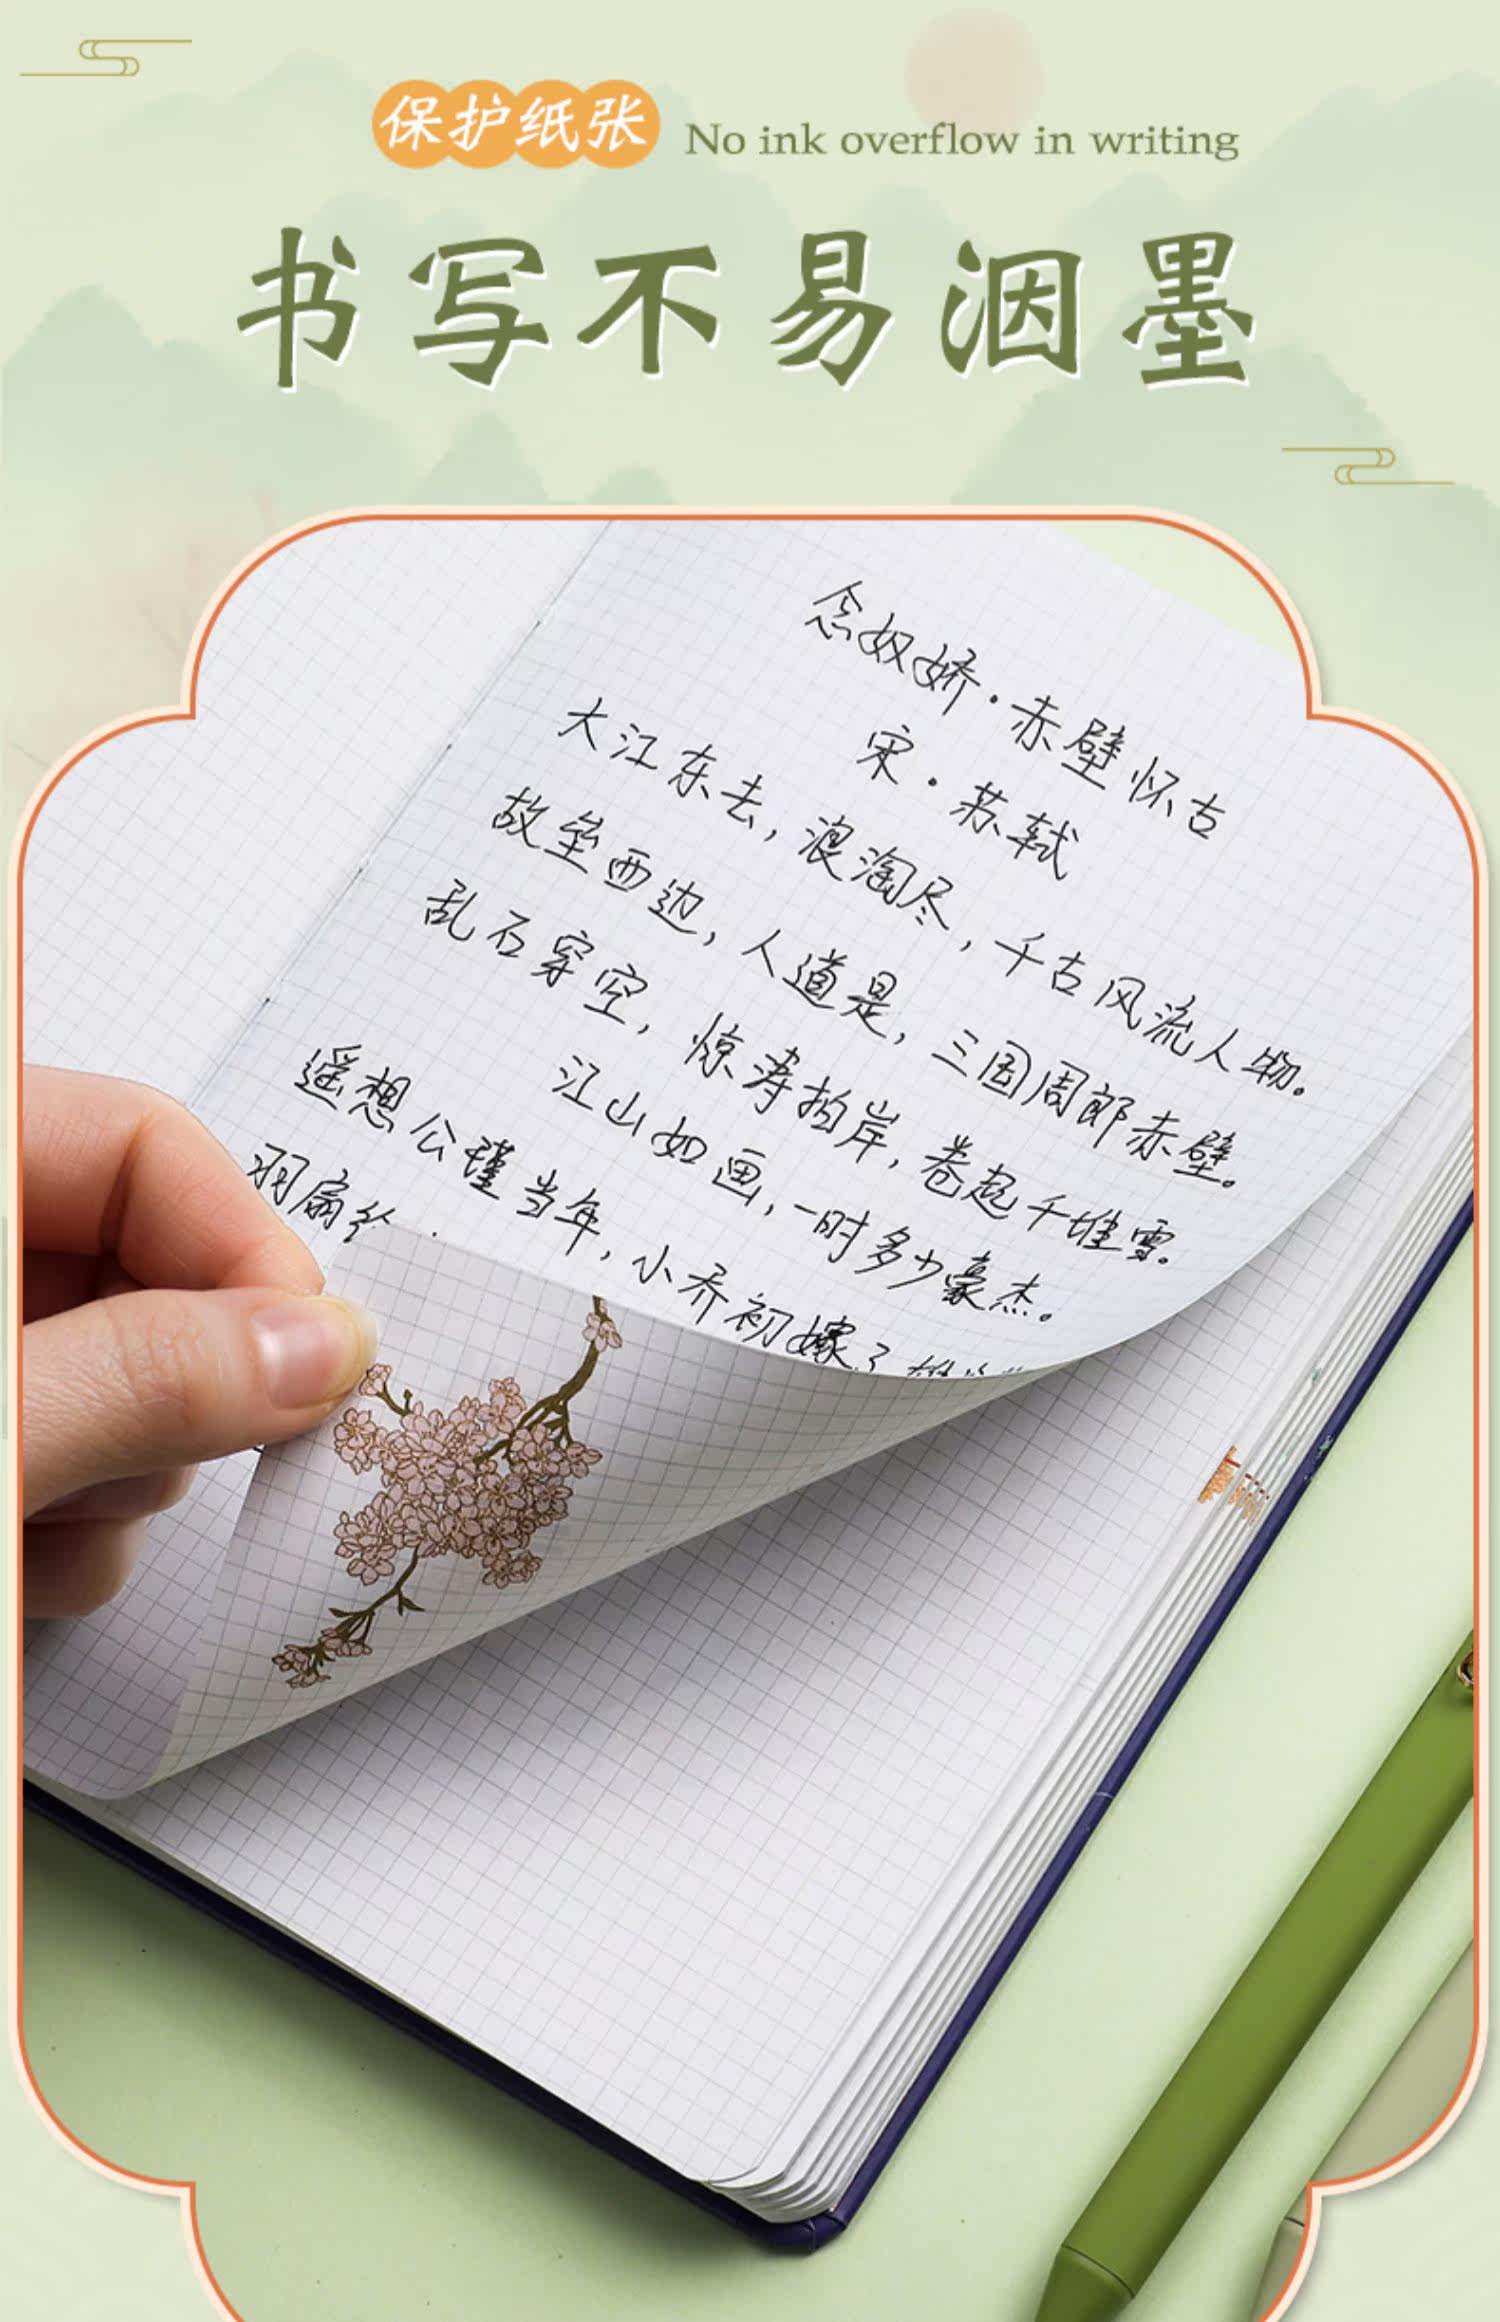 保护纸张 No ink overflow in writing
书写不易洇墨
念奴娇·赤壁怀古
宋·苏轼
大江东去,浪淘尽,千古风流人物。
故垒西边,人道是,三国周郎赤壁。
乱石穿空,惊涛拍岸,卷起千堆雪。
江山如画,一时多少豪杰。
遥想公瑾当年,小乔初嫁了
羽扇